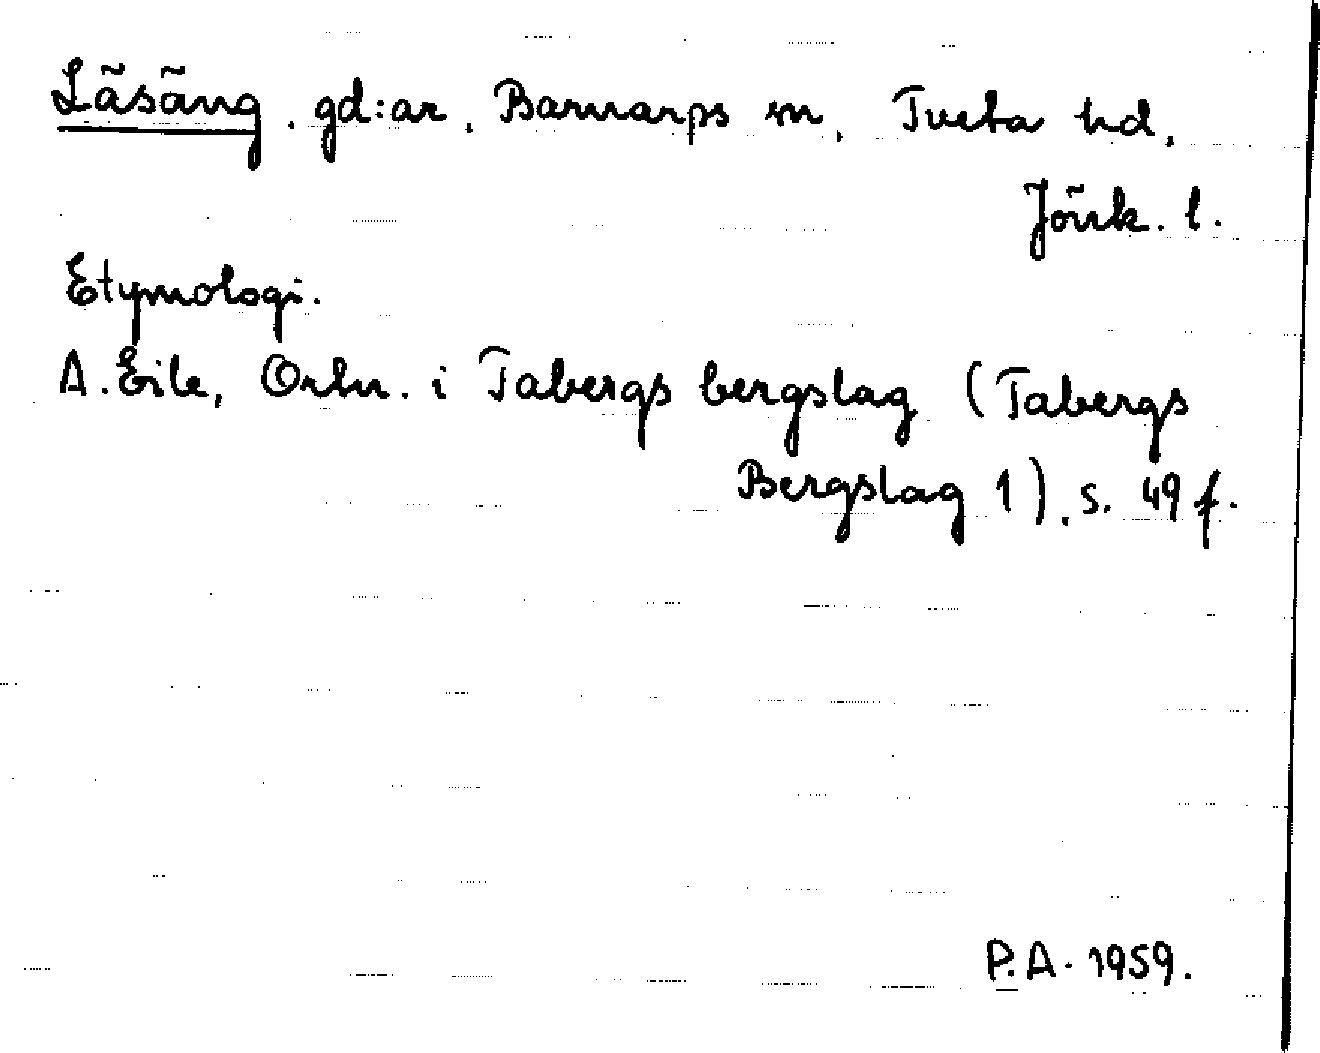 Läsäng. gd:ar, Barnarps sn, Tveta hd,
Jönk. l.
Etymologi.
A. Eile, Ortn. i Tabergs bergslag (Tabergs
Bergslag 1), s. 49 f.
P.A. 1959.